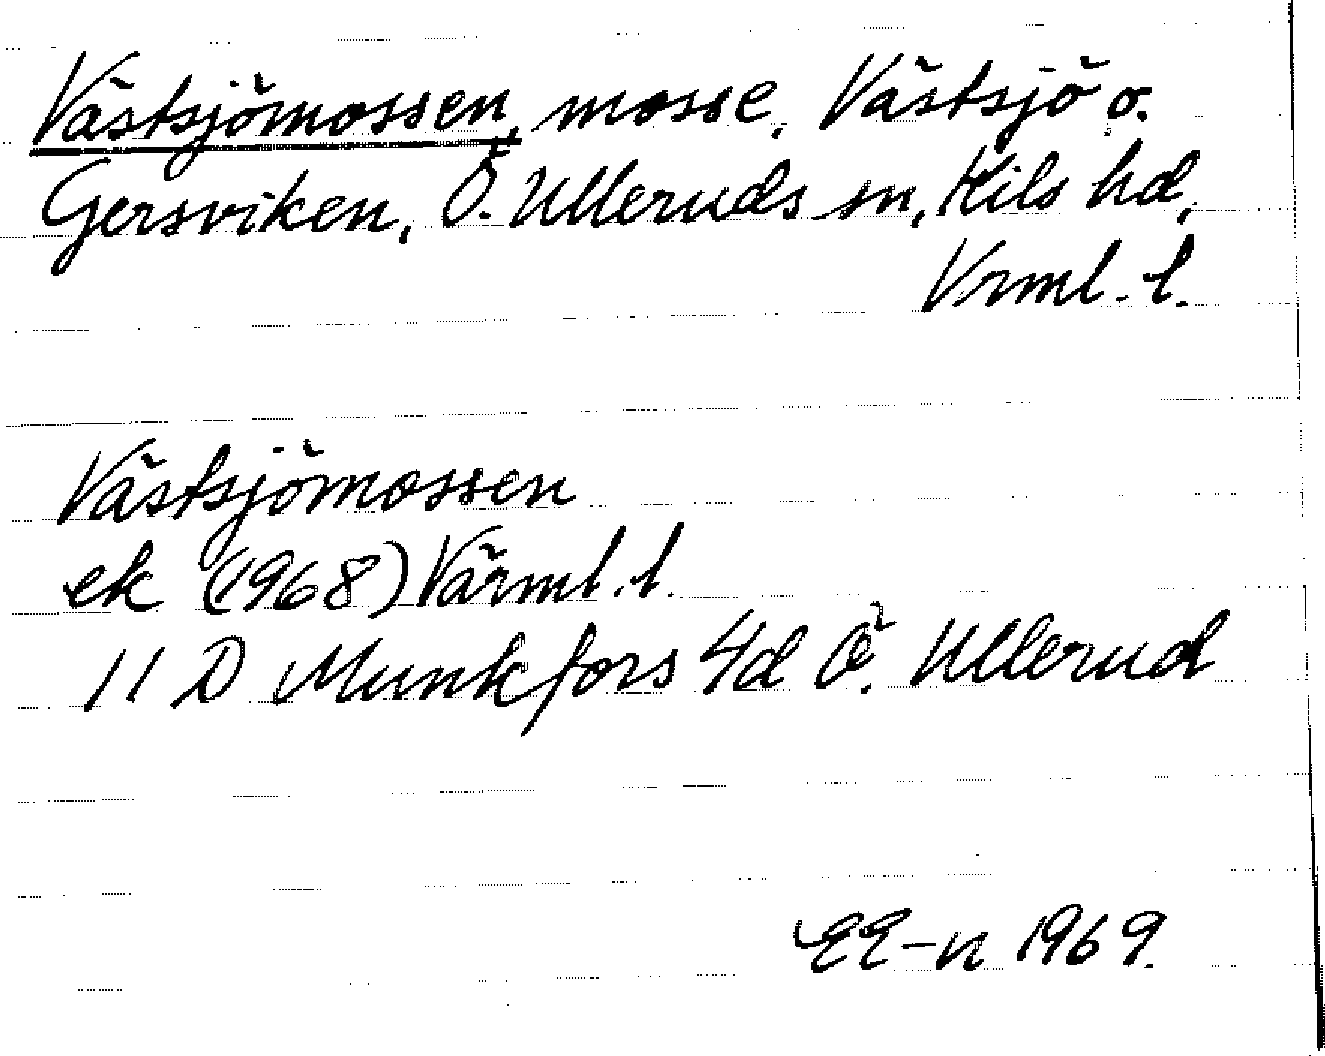 Västsjömossen, mosse, Västsjö o.
Gersviken, Ö. Ulleruds sn, Kils hd,
Vrml. l.
Västsjömossen
ek (1968) Värml. l.
11 D Munkfors 4d Ö. Ullerud
EE-n 1969.